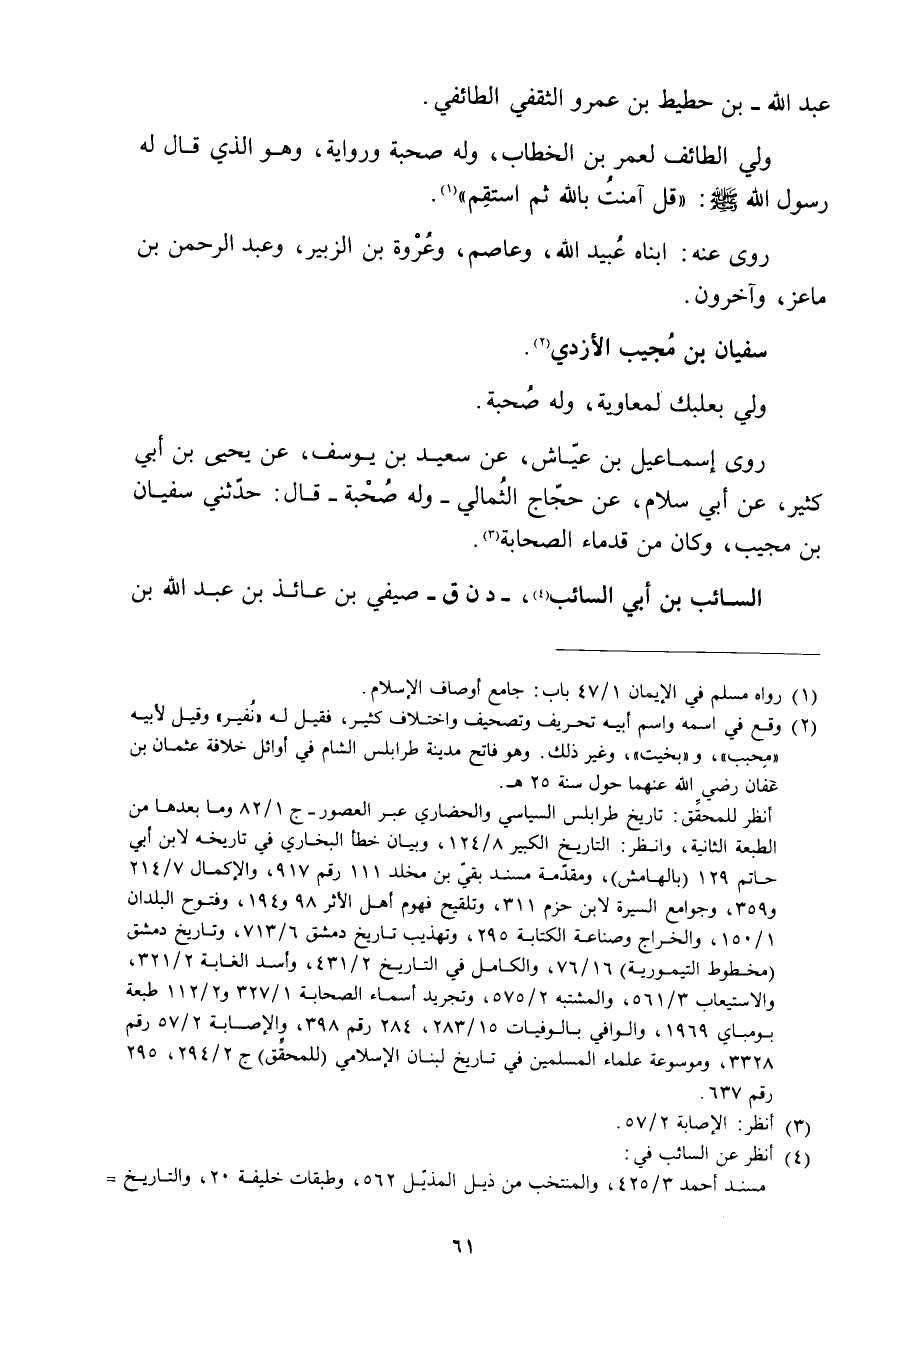 عبد الله ـ بن حطيط بن عمرو الثقفي الطائفي.
ولي الطائف لعمر بن الخطاب، وله صحبة ورواية، وهو الذي قال له
رسول الله ﷺ: «قل آمنتُ بالله ثم استقِم»(١).
روى عنه: ابناه عُبيد الله، وعاصم، وعُرْوة بن الزبير، وعبد الرحمن بن
ماعز، وآخرون.
سفيان بن مُجيب الأزدي(٢).
ولي بعلبك لمعاوية، وله صُحبة.
روى إسماعيل بن عيّاش، عن سعيد بن يوسف، عن يحيى بن أبي
كثير، عن أبي سلام، عن حجّاج الثُمالي ـ وله صُحْبة ـ قال: حدّثني سفيان
بن مجيب، وكان من قدماء الصحابة(٣).
السائب بن أبي السائب(٤)، ـ د ن ق ـ صيفي بن عائذ بن عبد الله بن
(١) رواه مسلم في الإيمان ٤٧/١ باب: جامع أوصاف الإسلام.
(٢) وقع في اسمه واسم أبيه تحريف وتصحيف واختلاف كثير، فقيل له «نُفير» وقيل لأبيه
«مجبب»، و«بخيت»، وغير ذلك. وهو فاتح مدينة طرابلس الشام في أوائل خلافة عثمان بن
عفان رضي الله عنهما حول سنة ٢٥ هـ.
أنظر للمحقّق: تاريخ طرابلس السياسي والحضاري عبر العصور ـ ج ٨٢/١ وما بعدها من
الطبعة الثانية، وانظر: التاريخ الكبير ١٢٤/٨، وبيان خطأ البخاري في تاريخه لابن أبي
حاتم ١٢٩ (بالهامش)، ومقدّمة مسند بقيّ بن مخلد ١١١ رقم ٩١٧، والإكمال ٢١٤/٧
و٣٥٩، وجوامع السيرة لابن حزم ٣١١، وتلقيح فهوم أهل الأثر ٩٨ و١٩٤، وفتوح البلدان
١٥٠/١، والخراج وصناعة الكتابة ٢٩٥، وتهذيب تاريخ دمشق ٧١٣/٦، وتاريخ دمشق
(مخطوط التيمورية) ٧٦/١٦، والكامل في التاريخ ٤٣١/٢، وأسد الغابة ٣٢١/٢،
والاستيعاب ٥٦١/٣، والمشتبه ٥٧٥/٢، وتجريد أسماء الصحابة ٣٢٧/١ و١١٢/٢ طبعة
بومباي ١٩٦٩، والوافي بالوفيات ٢٨٣/١٥، ٢٨٤ رقم ٣٩٨، والإصابة ٥٧/٢ رقم
٣٣٢٨، وموسوعة علماء المسلمين في تاريخ لبنان الإسلامي (للمحقّق) ج ٢٩٤/٢، ٢٩٥
رقم ٦٣٧.
(٣) أنظر: الإصابة ٥٧/٢.
(٤) أنظر عن السائب في:
مسند أحمد ٤٢٥/٣، والمنتخب من ذيل المذيّل ٥٦٢، وطبقات خليفة ٢٠، والتاريخ =
٦١